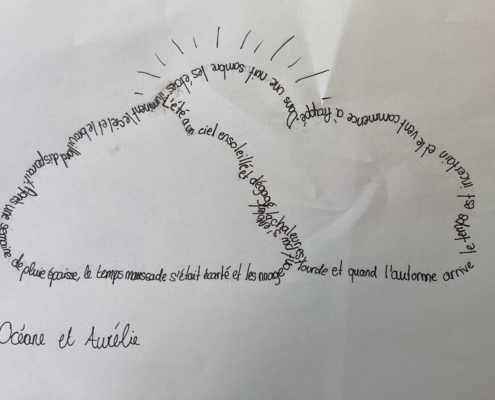 Dans une nuit sombre les étoiles illuminent le ciel et le brouillard disparaît Après une semaine
de pluie épaisse, le temps maussade s'était écarté et les nuages
L'été a un ciel ensoleillé et dégagé la chaleur est
lourde et quand l'automne arrive
le temps est incertain et le vent commence à frapper.
Océane et Aurélie